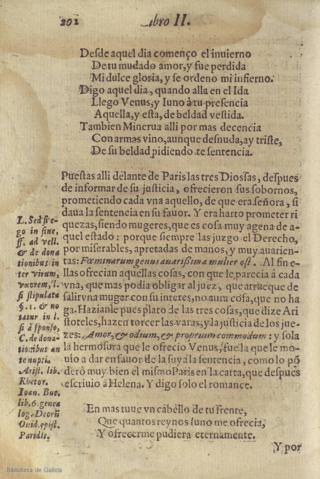 202 Libro II.
Desde aquel dia començo el inuierno
De tu mudado amor, y fue perdida
Mi dulce gloria, y se ordeno mi infierno.
Digo aquel dia, quando alla en el Ida
Llego Venus, y Iuno à tu presencia
Aquella, y esta, de beldad vestida.
Tambien Minerua alli por mas decencia
Con armas vino, aunque desnuda, ay triste,
De su beldad pidiendo te sentencia.
Puestas alli delante de Paris las tres Diossas, despues
de informar de su justicia, ofrecieron sus sobornos,
prometiendo cada vna aquello, de que era señora, si
daua la sentencia en su fauor. Y era harto prometer ri
quezas, siendo mugeres, que es cosa muy agena de a-
quel estado: porque siempre las juzgo el Derecho,
por miserables, apretadas de manos, y muy auarien-
tas: Fœminarum genus auarissimum mulier est. Al fin e-
llas ofrecian aquellas cosas, con que le parecia à cada
vna, que mas podia obligar al juez, que à trueque de
salir vna muger con su intetes, no aura cosa, que no ha
ga. Hazianle pues plaro de las tres cosas, que dize Ari
stoteles, hazen torcer las varas, y la justicia de los jue-
zes: Amor, & odium, & proprium commodum: y sola
la hermosura que le ofrecio Venus, fue la que le mo-
uio a dar en fauor de la suya la sentencia, como lo pō
derò muy bien el mismo Paris en la carta, que despues
escriuio à Helena. Y digo solo el romance.
En mas tuue vn cabello de tu frente,
Que quantos reynos Iuno me ofrecia,
Y ofrecerme pudiera eternamente.
Y por
L. Sed si e-
go in fine,
ff. ad vell.
& de dona
tionibus in
ter virum,
uxorem, l.
si stipulata
§. 1. & no
tatur in l.
si à sponso,
C. de dona-
tionibus an
te nupti.
Arist. lib.
Rhetor.
Ioan. Boc.
lib. 6. genea
log. Deorū
Ouid. epist.
Paridis.
Biblioteca de Galicia